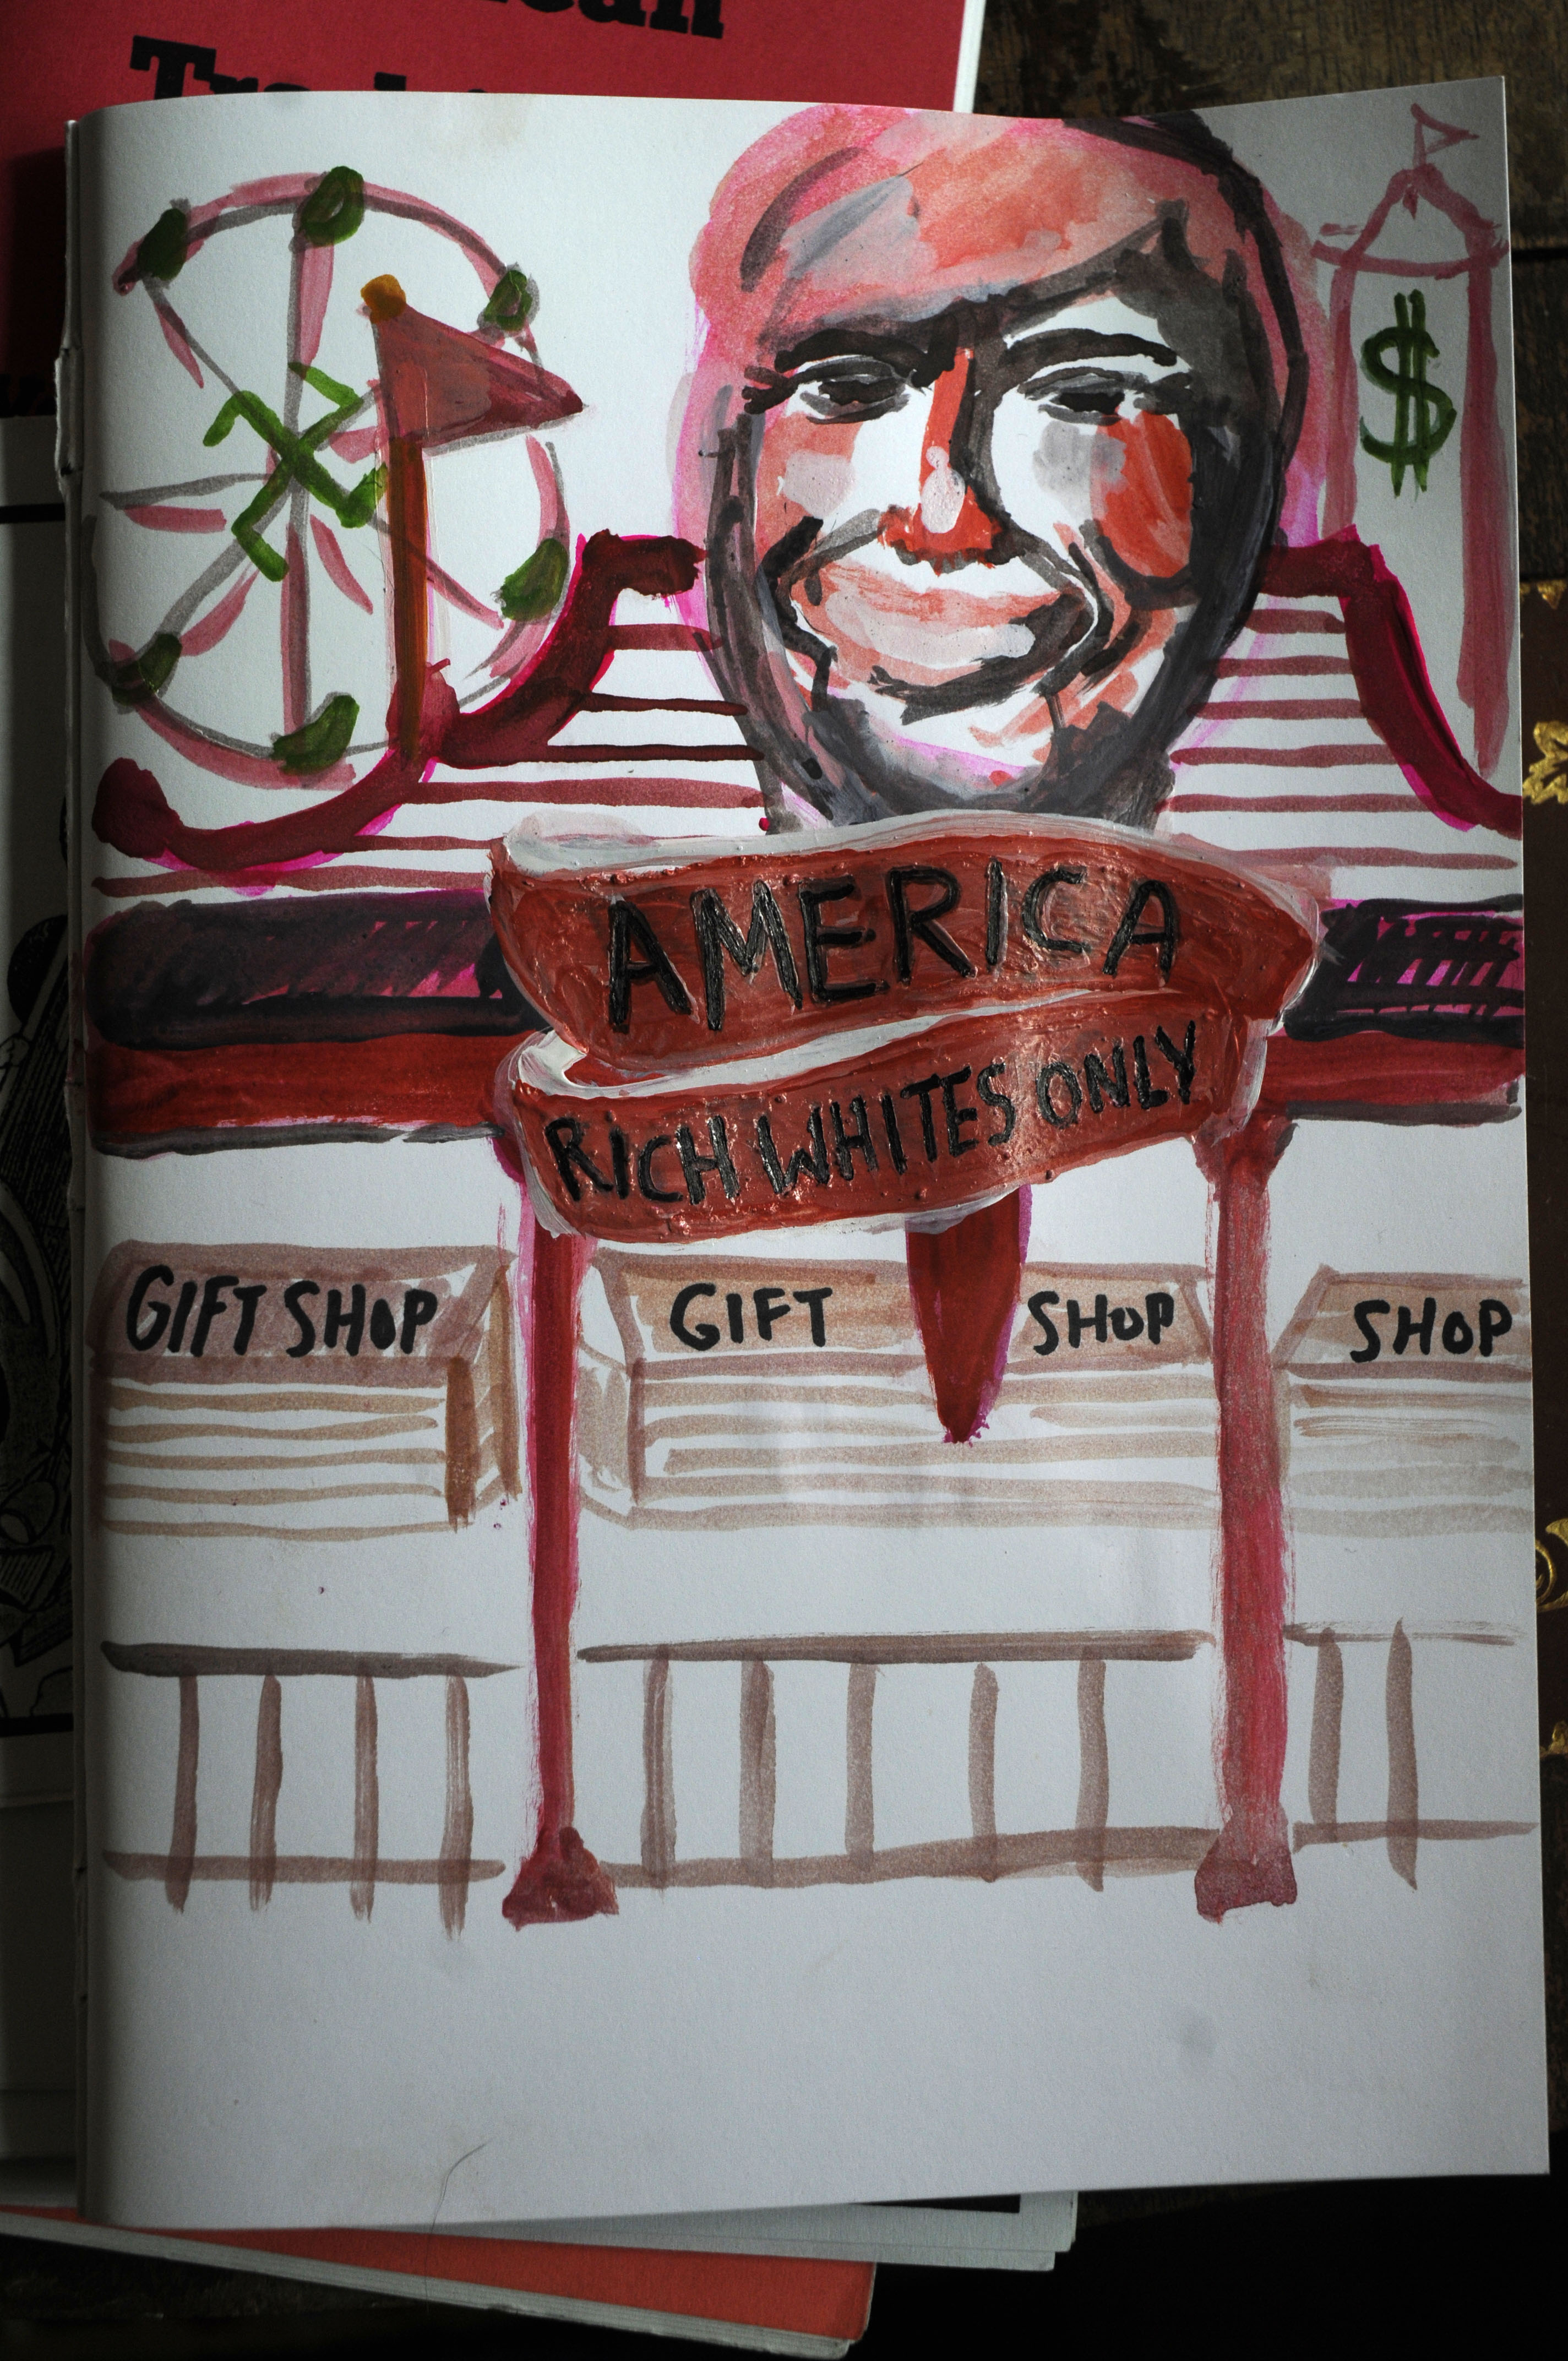 $
AMERICA
RICH WHITES ONLY
GIFT SHOP
GIFT SHOP
SHOP